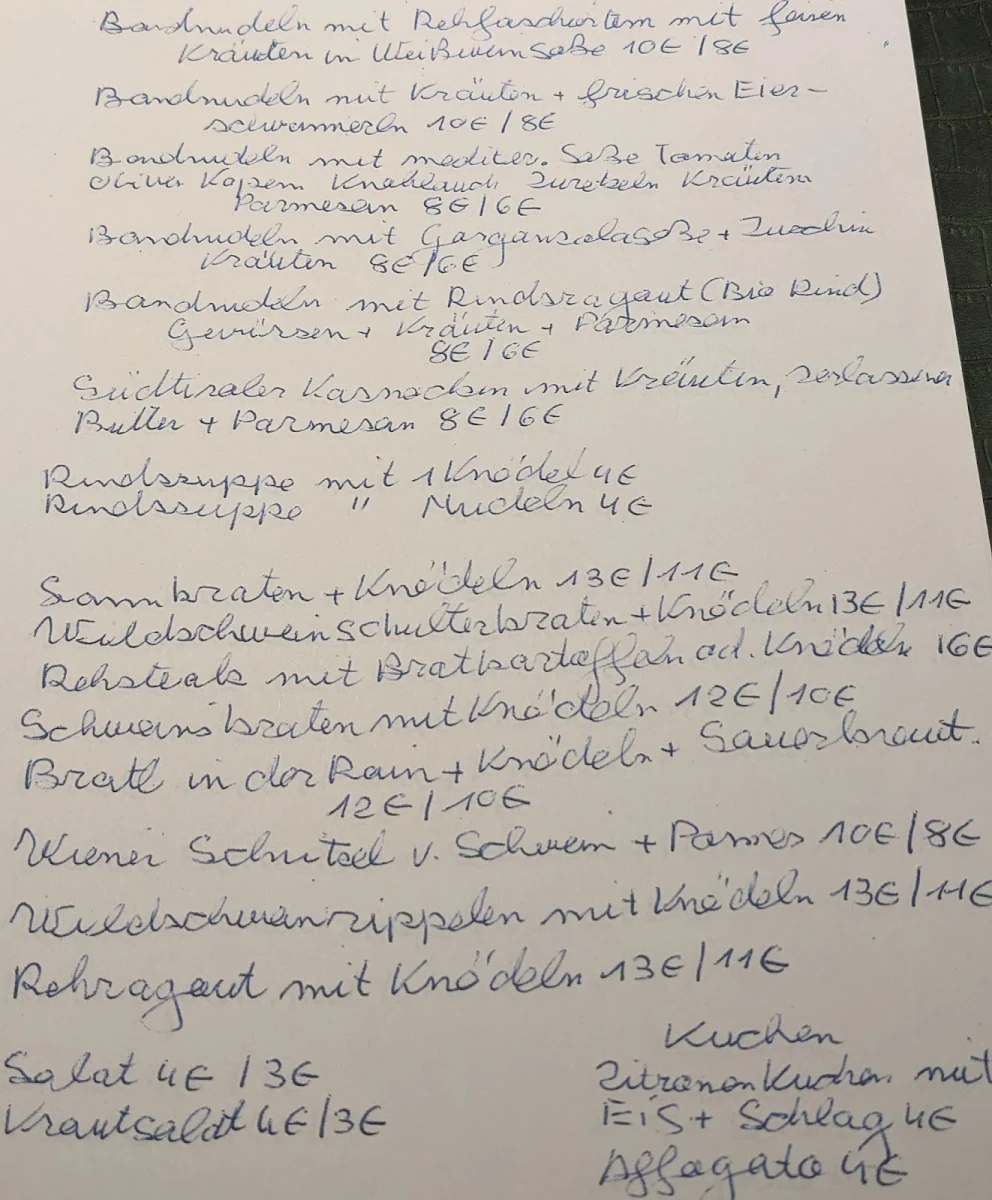 Bandnudeln mit Rehfaschiertem mit feinen
Kräutern in Weißwein Soße 10€ / 8€
Bandnudeln mit Kräutern + frischen Eier-
schwammerln 10€ / 8€
Bandnudeln mit mediter. Soße Tomaten
Oliven Kapern Knoblauch Zwiebeln Kräutern
Parmesan 8€ / 6€
Bandnudeln mit Gorganzolasoße + Zucchini
Kräutern 8€ / 6€
Bandnudeln mit Rindsragout (Bio Rind)
Gewürzen + Kräutern + Parmesan
8€ / 6€
Südtiroler Kasnocken mit Kräutern, zerlassener
Butter + Parmesan 8€ / 6€
Rindssuppe mit 1 Knödel 4€
Rindssuppe " Nudeln 4€
braten + Knödeln 13€ / 11€
Wildschweinschulterbraten + Knödeln 13€ / 11€
Rehsteak mit Bratkartoffeln od. Knödeln 16€
Schweinsbraten mit Knödeln 12€ / 10€
Bratl in der Rain + Knödeln + Sauerkraut.
12€ / 10€
Wiener Schnitzel v. Schwein + Pommes 10€ / 8€
Wildschweinrippelen mit Knödeln 13€ / 11€
Rehragout mit Knödeln 13€ / 11€
Salat 4€ / 3€
Krautsalat 4€ / 3€
Kuchen
Zitronenkuchen mit
Eis + Schlag 4€
Affogato 4€